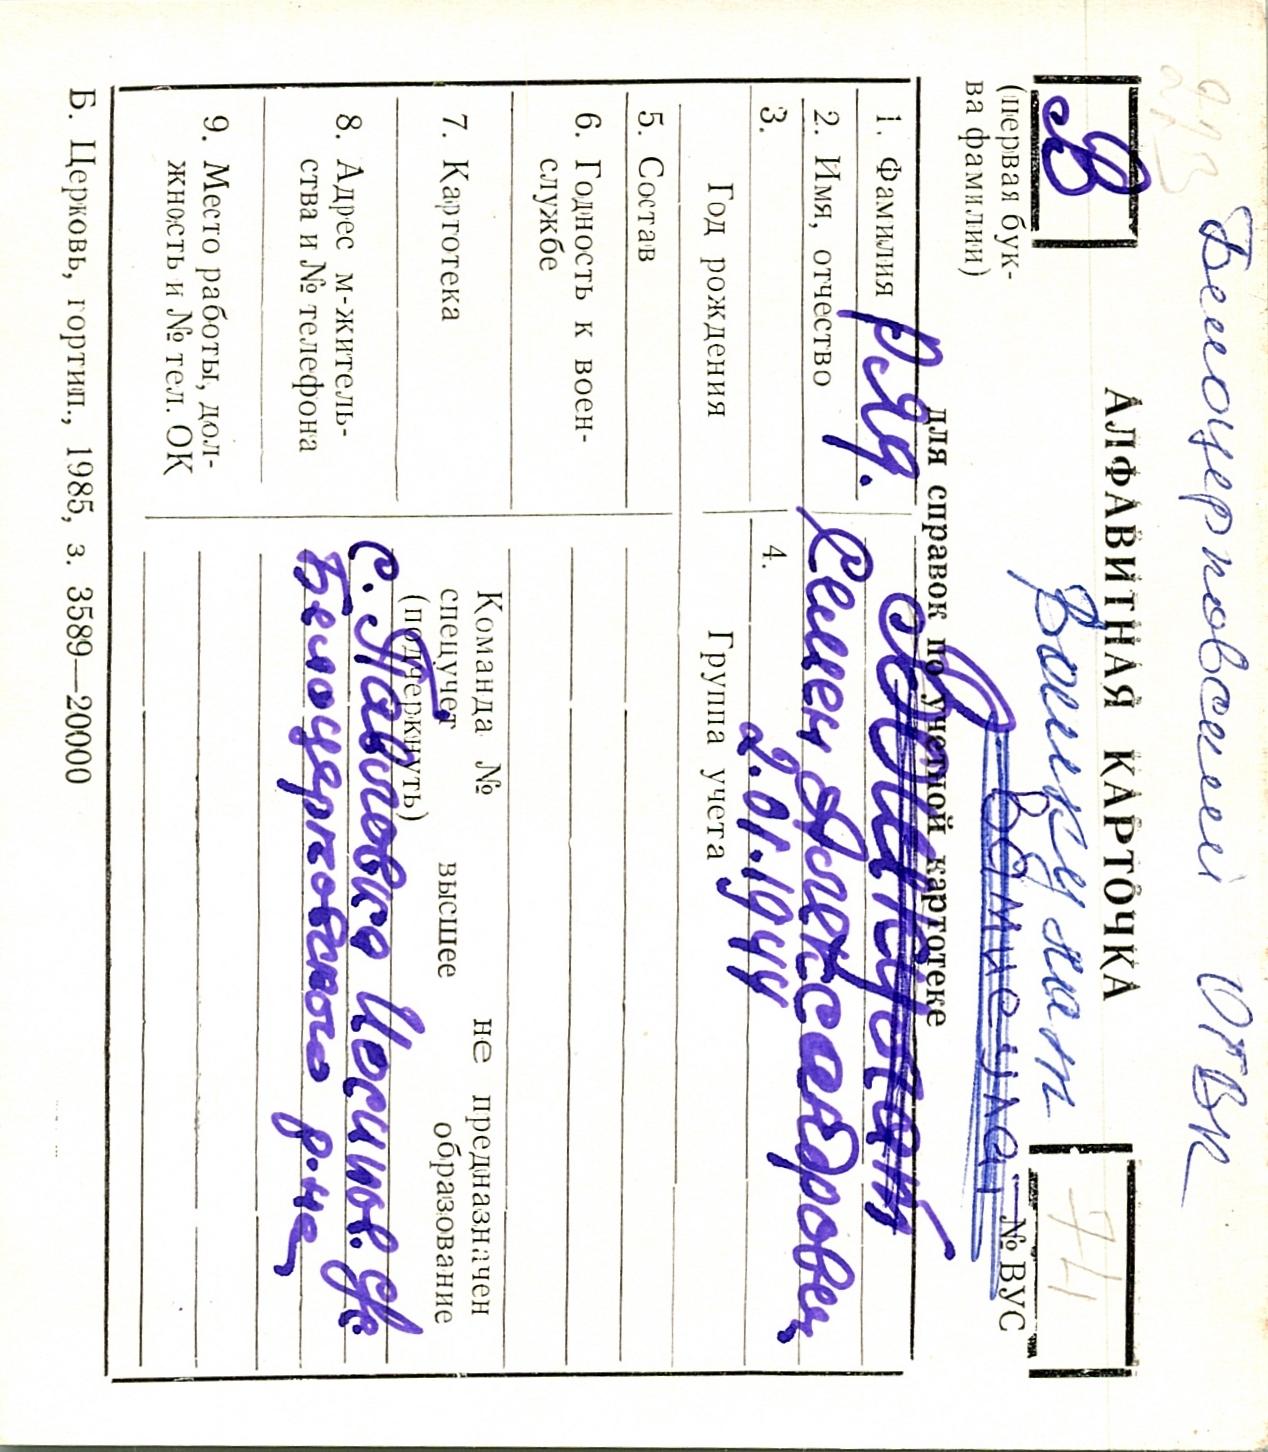 Белоцерковский ОГВК
В
(первая бук-
ва фамилии)
АЛФАВИТНАЯ КАРТОЧКА
№ ВУС
74
для справок по учетной картотеке
1. Фамилия
ряд.
2. Имя, отчество
Семен Александрович
3.
Год рождения
2.01.1944
4.
Группа учета
5. Состав
6. Годность к воен-
службе
7. Картотека
Команда №
не предназначен
спецучет
высшее
образование
(подчеркнуть)
8. Адрес м-житель-
ства и № телефона
с. Павловка
Белоцерковского р-на
9. Место работы, дол-
жность и № тел. ОК
Б. Церковь, гортип., 1985, з. 3589—20000